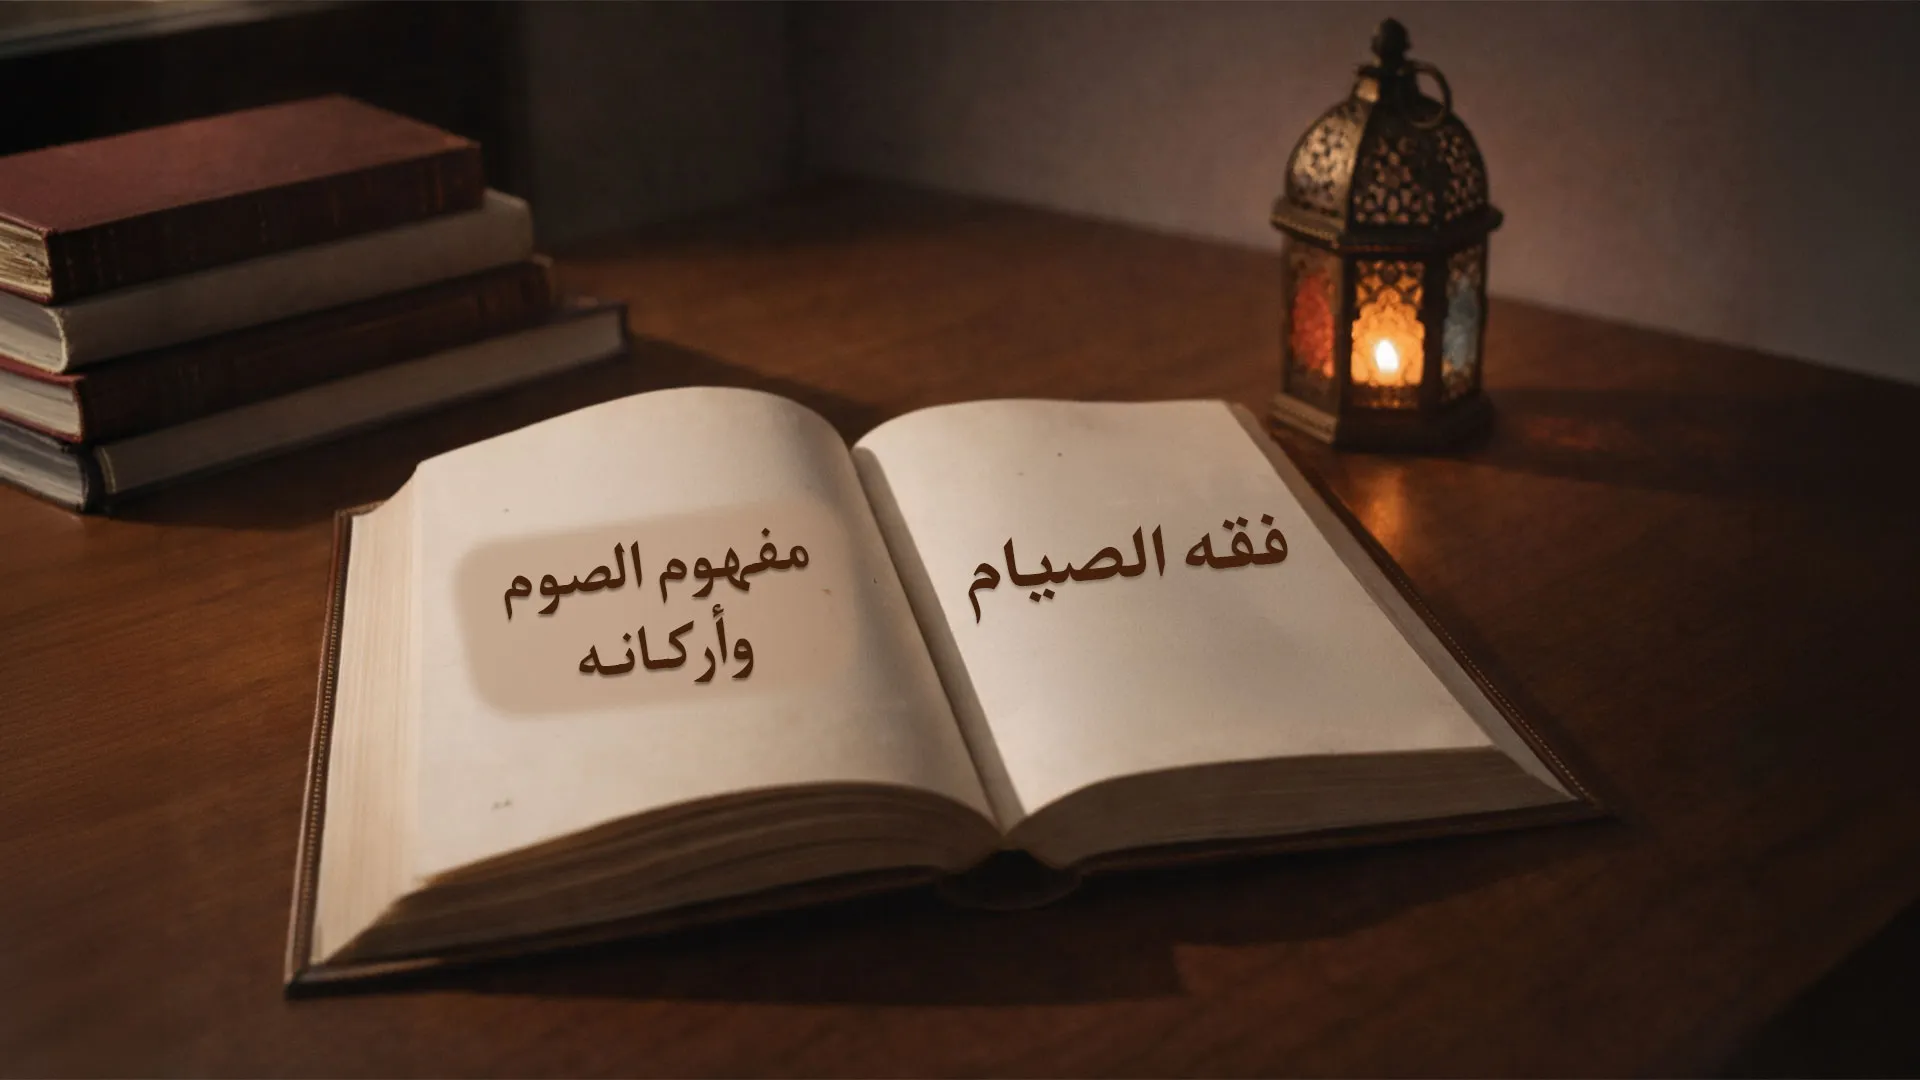 فقه الصيام
مفهوم الصوم
وأركانه